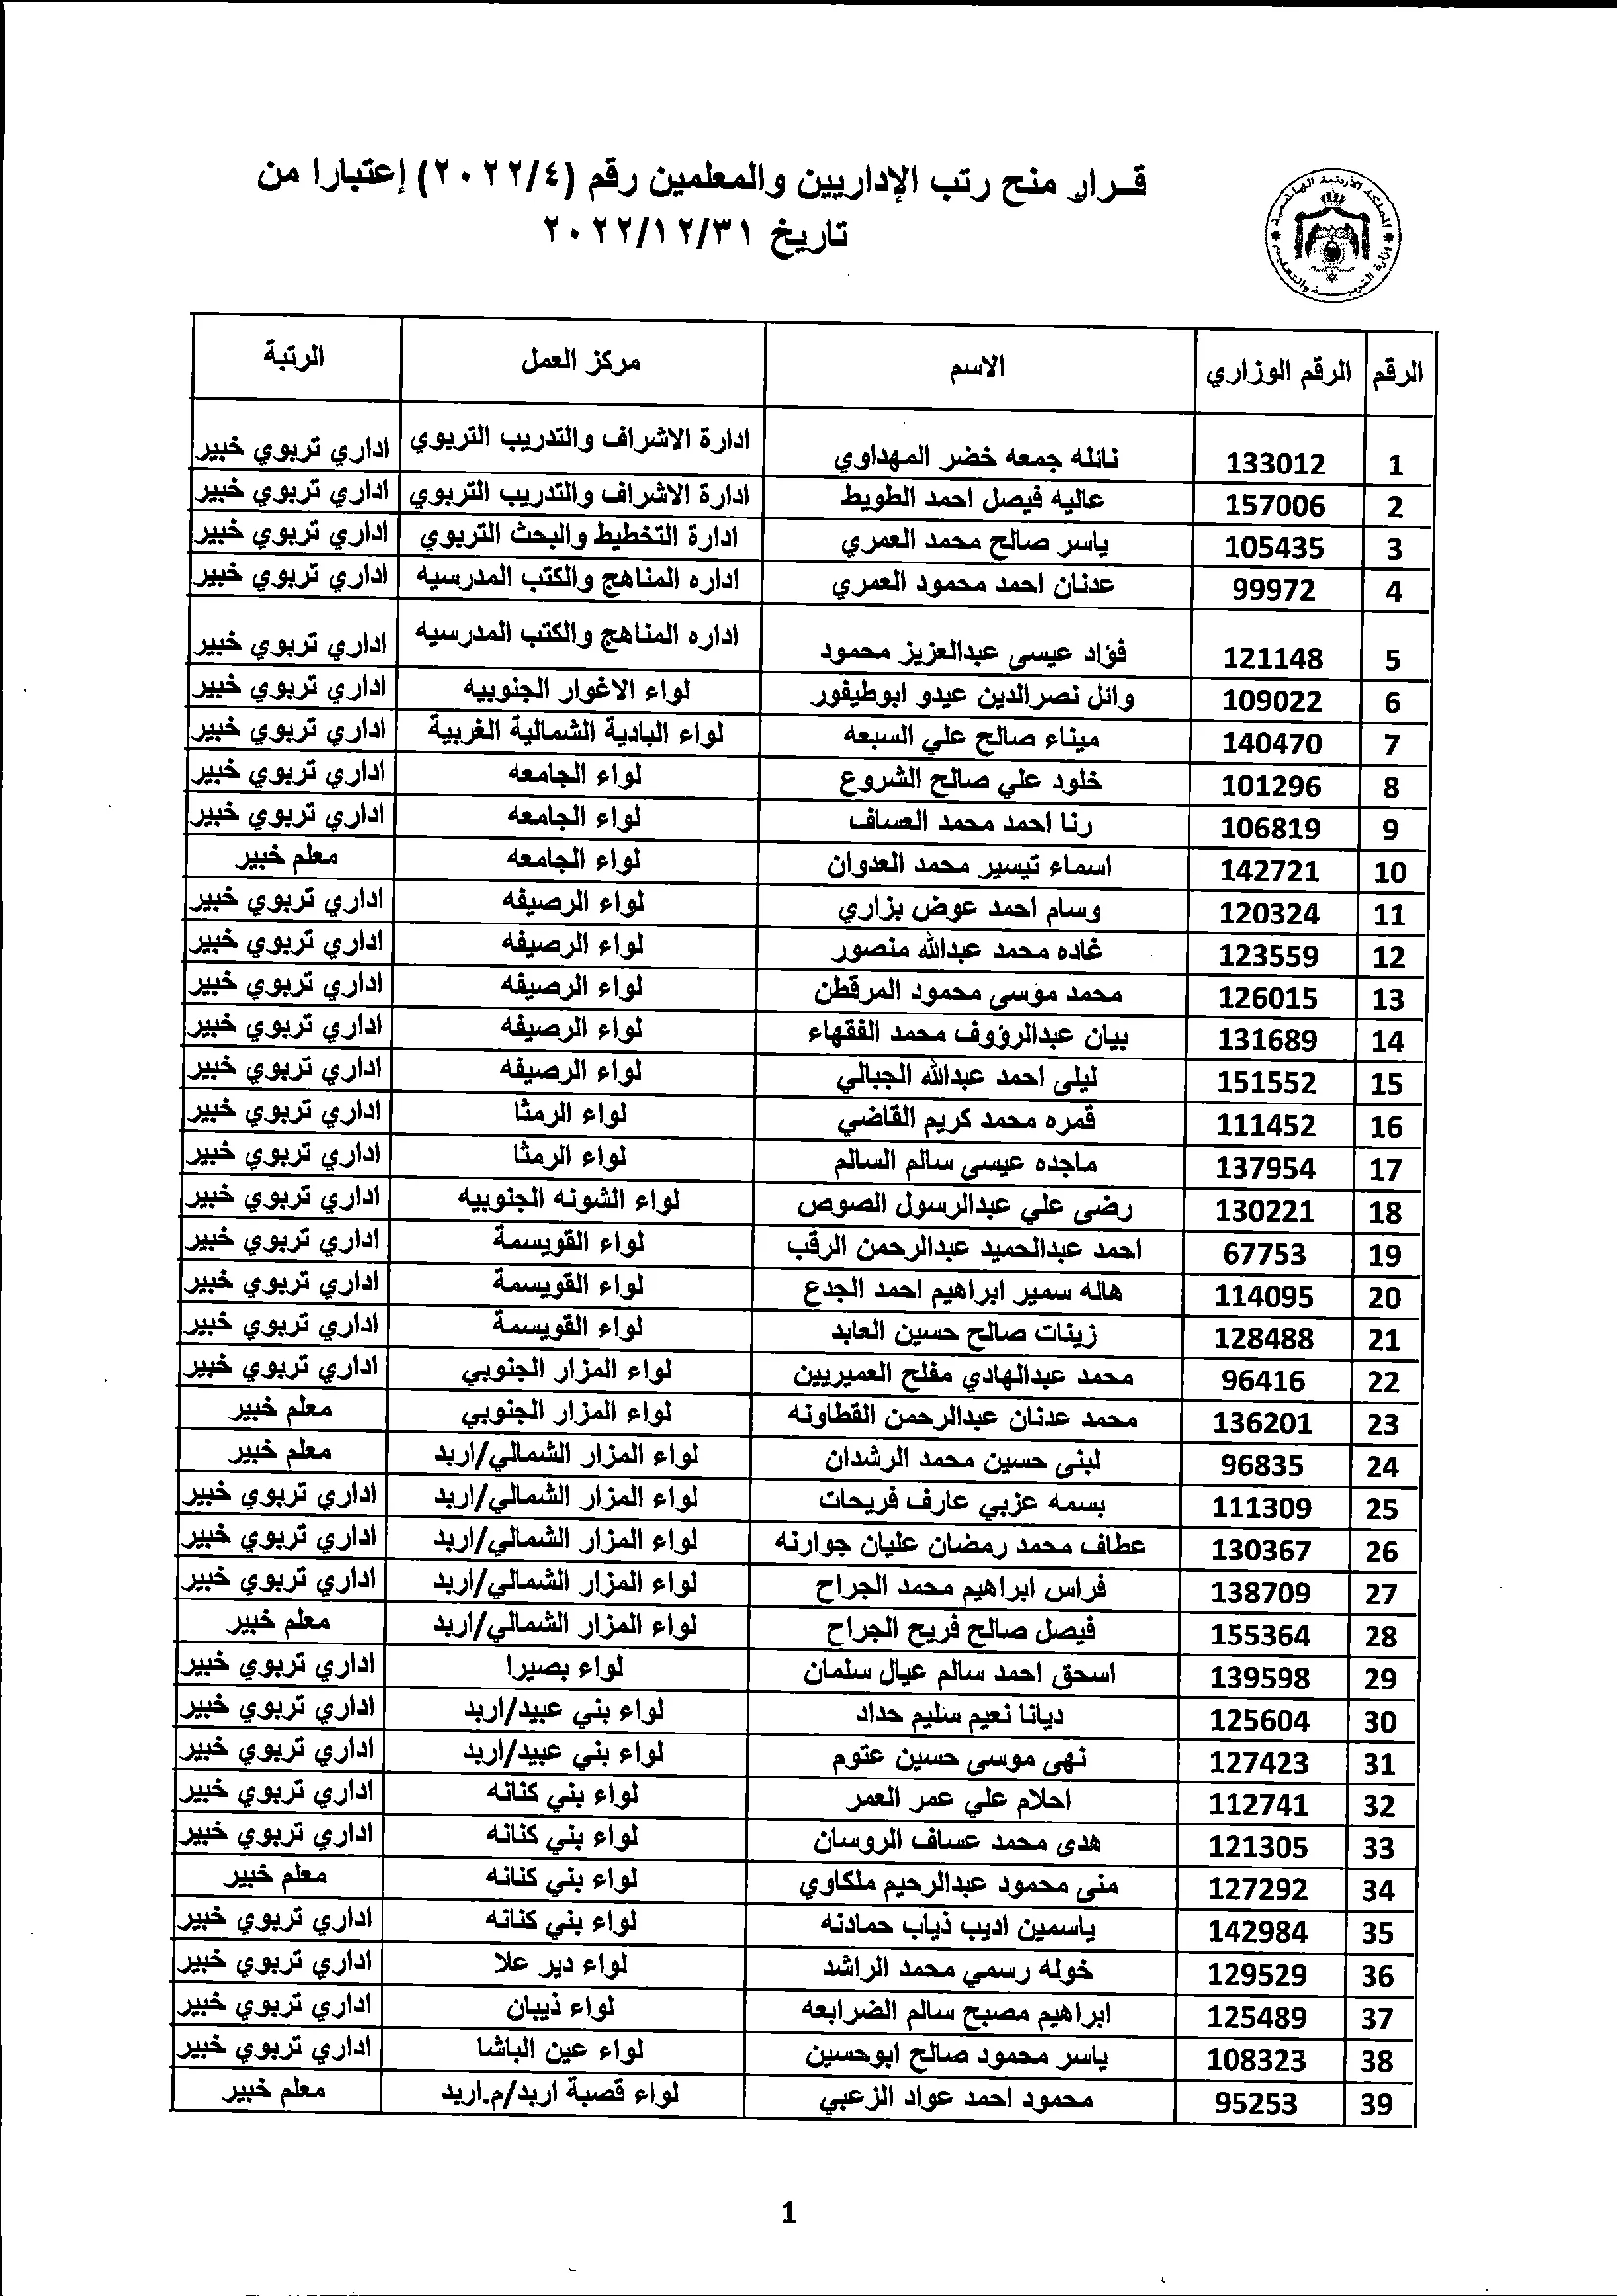 قرار منح رتب الإداريين والمعلمين رقم (٢٠٢٢/٤) إعتبارا من
تاريخ ٢٠٢٢/١٢/٣١
المملكة الأردنية الهاشمية * وزارة التربية والتعليم *
الرقم الرقم الوزاري الاسم مركز العمل الرتبة
1 133012 نائله جمعه خضر المهداوي ادارة الاشراف والتدريب التربوي اداري تربوي خبير
2 157006 عاليه فيصل احمد الطويط ادارة الاشراف والتدريب التربوي اداري تربوي خبير
3 105435 ياسر صالح محمد العمري ادارة التخطيط والبحث التربوي اداري تربوي خبير
4 99972 عدنان احمد محمود العمري اداره المناهج والكتب المدرسيه اداري تربوي خبير
5 121148 فؤاد عيسى عبدالعزيز محمود اداره المناهج والكتب المدرسيه اداري تربوي خبير
6 109022 وائل نصرالدين عيدو ابوطيفور لواء الاغوار الجنوبيه اداري تربوي خبير
7 140470 ميناء صالح علي السبعه لواء البادية الشمالية الغربية اداري تربوي خبير
8 101296 خلود علي صالح الشروع لواء الجامعه اداري تربوي خبير
9 106819 رنا احمد محمد العساف لواء الجامعه اداري تربوي خبير
10 142721 اسماء تيسير محمد العدوان لواء الجامعه معلم خبير
11 120324 وسام احمد عوض بزاري لواء الرصيفه اداري تربوي خبير
12 123559 غاده محمد عبدالله منصور لواء الرصيفه اداري تربوي خبير
13 126015 محمد مؤسى محمود المرقطن لواء الرصيفه اداري تربوي خبير
14 131689 بيان عبدالرؤوف محمد الفقهاء لواء الرصيفه اداري تربوي خبير
15 151552 ليلى احمد عبدالله الجبالي لواء الرصيفه اداري تربوي خبير
16 111452 قمره محمد كريم القاضي لواء الرمثا اداري تربوي خبير
17 137954 ماجده عيسى سالم السالم لواء الرمثا اداري تربوي خبير
18 130221 رضى علي عبدالرسول الصوص لواء الشونه الجنوبيه اداري تربوي خبير
19 67753 احمد عبدالحميد عبدالرحمن الرقب لواء القويسمة اداري تربوي خبير
20 114095 هاله سمير ابراهيم احمد الجدع لواء القويسمة اداري تربوي خبير
21 128488 زينات صالح حسين العابد لواء القويسمة اداري تربوي خبير
22 96416 محمد عبدالهادي مفلح العميريين لواء المزار الجنوبي اداري تربوي خبير
23 136201 محمد عدنان عبدالرحمن القطاونه لواء المزار الجنوبي معلم خبير
24 96835 لبنى حسين محمد الرشدان لواء المزار الشمالي/اربد معلم خبير
25 111309 بسمه عزبي عارف فريحات لواء المزار الشمالي/اربد اداري تربوي خبير
26 130367 عطاف محمد رمضان عليان جوارنه لواء المزار الشمالي/اربد اداري تربوي خبير
27 138709 فراس ابراهيم محمد الجراح لواء المزار الشمالي/اربد اداري تربوي خبير
28 155364 فيصل صالح فريح الجراح لواء المزار الشمالي/اربد معلم خبير
29 139598 اسحق احمد سالم عيال سلمان لواء بصيرا اداري تربوي خبير
30 125604 ديانا نعيم سليم حداد لواء بني عبيد/اربد اداري تربوي خبير
31 127423 نهى موسى حسين عتوم لواء بني عبيد/اربد اداري تربوي خبير
32 112741 احلام علي عمر العمر لواء بني كنانه اداري تربوي خبير
33 121305 هدى محمد عساف الروسان لواء بني كنانه اداري تربوي خبير
34 127292 منى محمود عبدالرحيم ملكاوي لواء بني كنانه معلم خبير
35 142984 ياسمين اديب ذياب حمادنه لواء بني كنانه اداري تربوي خبير
36 129529 خوله رسمي محمد الراشد لواء دير علا اداري تربوي خبير
37 125489 ابراهيم مصبح سالم الضرابعه لواء ذيبان اداري تربوي خبير
38 108323 ياسر محمود صالح ابوحسين لواء عين الباشا اداري تربوي خبير
39 95253 محمود احمد عواد الزعبي لواء قصبة اربد/م.اربد معلم خبير
1